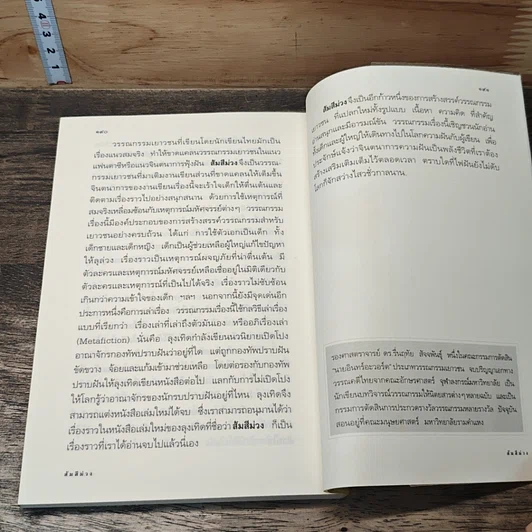 ๑๕๐
วรรณกรรมเยาวชนที่เขียนโดยนักเขียนไทยมักเป็น
เรื่องแนวสมจริง ทำให้ขาดแคลนวรรณกรรมเยาวชนในแนว
แฟนตาซีหรือแนวจินตนาการฟุ้งฝัน ส้มสีม่วง จึงเป็นวรรณ-
กรรมเยาวชนที่มาเติมงานเขียนส่วนที่ขาดแคลนให้เติมขึ้น
จินตนาการของงานเขียนเรื่องนี้จะเร้าใจเด็กให้ตื่นเต้นและ
ติดตามเรื่องราวไปอย่างสนุกสนาน ด้วยการใช้เหตุการณ์ที่
สมจริงเหลื่อมซ้อนกับเหตุการณ์มหัศจรรย์ต่างๆ วรรณกรรม
เรื่องนี้มีองค์ประกอบของการสร้างสรรค์วรรณกรรมสำหรับ
เยาวชนอย่างครบถ้วน ได้แก่ การใช้ตัวเอกเป็นเด็ก ทั้ง
เด็กชายและเด็กหญิง เด็กเป็นผู้ช่วยเหลือผู้ใหญ่แก้ไขปัญหา
ให้ลุล่วง เรื่องราวเป็นเหตุการณ์ผจญภัยที่น่าตื่นเต้น มี
ตัวละครและเหตุการณ์มหัศจรรย์เหลือเชื่ออยู่ในมิติเดียวกับ
ตัวละครและเหตุการณ์ที่เป็นไปได้จริง เรื่องราวไม่ซับซ้อน
เกินกว่าความเข้าใจของเด็ก ฯลฯ นอกจากนี้ยังมีจุดเด่นอีก
ประการหนึ่งคือการเล่าเรื่อง วรรณกรรมเรื่องนี้ใช้กลวิธีเล่าเรื่อง
แบบที่เรียกว่า เรื่องเล่าที่เล่าถึงตัวมันเอง หรืออภิเรื่องเล่า
(Metafiction) นั่นคือ ลุงเทิดกำลังเขียนนวนิยายเปิดโปง
อาณาจักรกองทัพปราบฝันว่าอยู่ที่ใด แต่ถูกกองทัพปราบฝัน
ขัดขวาง จ้อยและแก้มเข้ามาช่วยเหลือ โดยต่อรองกับกองทัพ
ปราบฝันให้ลุงเทิดเขียนหนังสือต่อไป แลกกับการไม่เปิดโปง
ให้โลกรู้ว่าอาณาจักรของนักรบปราบฝันอยู่ที่ไหน ลุงเทิดจึง
สามารถแต่งหนังสือเล่มใหม่ได้จบ ซึ่งเราสามารถอนุมานได้ว่า
เรื่องราวในหนังสือเล่มใหม่ของลุงเทิดที่ชื่อว่า ส้มสีม่วง ก็เป็น
เรื่องราวที่เราได้อ่านจบไปแล้วนี่เอง
ส้มสีม่วง
๑๕๑
ส้มสีม่วง จึงเป็นอีกก้าวหนึ่งของการสร้างสรรค์วรรณกรรม
เยาวชน ที่แปลกใหม่ทั้งรูปแบบ เนื้อหา ความคิด ที่สำคัญ
อ่านสนุกและมีอารมณ์ขัน วรรณกรรมเรื่องนี้เชิญชวนนักอ่าน
ทั้งเด็กและผู้ใหญ่ ให้เดินทางไปในโลกความฝันกับผู้เขียน เพื่อ
ประจักษ์แจ้งว่าจินตนาการความฝันเป็นพลังชีวิตที่เราต้อง
สร้างเสริมเติมเต็มไว้ตลอดเวลา ตราบใดที่ไฟฝันยังไม่ดับ
โลกก็จักสว่างไสวชั่วกาลนาน
รองศาสตราจารย์ ดร.รื่นฤทัย สัจจพันธุ์ หนึ่งในคณะกรรมการตัดสิน
"นายอินทร์อะวอร์ด" ประเภทวรรณกรรมเยาวชน จบปริญญาเอกทาง
วรรณคดีไทยจากคณะอักษรศาสตร์ จุฬาลงกรณ์มหาวิทยาลัย เป็น
นักเขียนบทวิจารณ์วรรณกรรมให้นิตยสารต่างๆหลายฉบับ และเป็น
กรรมการตัดสินการประกวดรางวัลวรรณกรรมหลายรางวัล ปัจจุบัน
สอนอยู่ที่คณะมนุษยศาสตร์ มหาวิทยาลัยรามคำแหง
ส้มสีม่วง